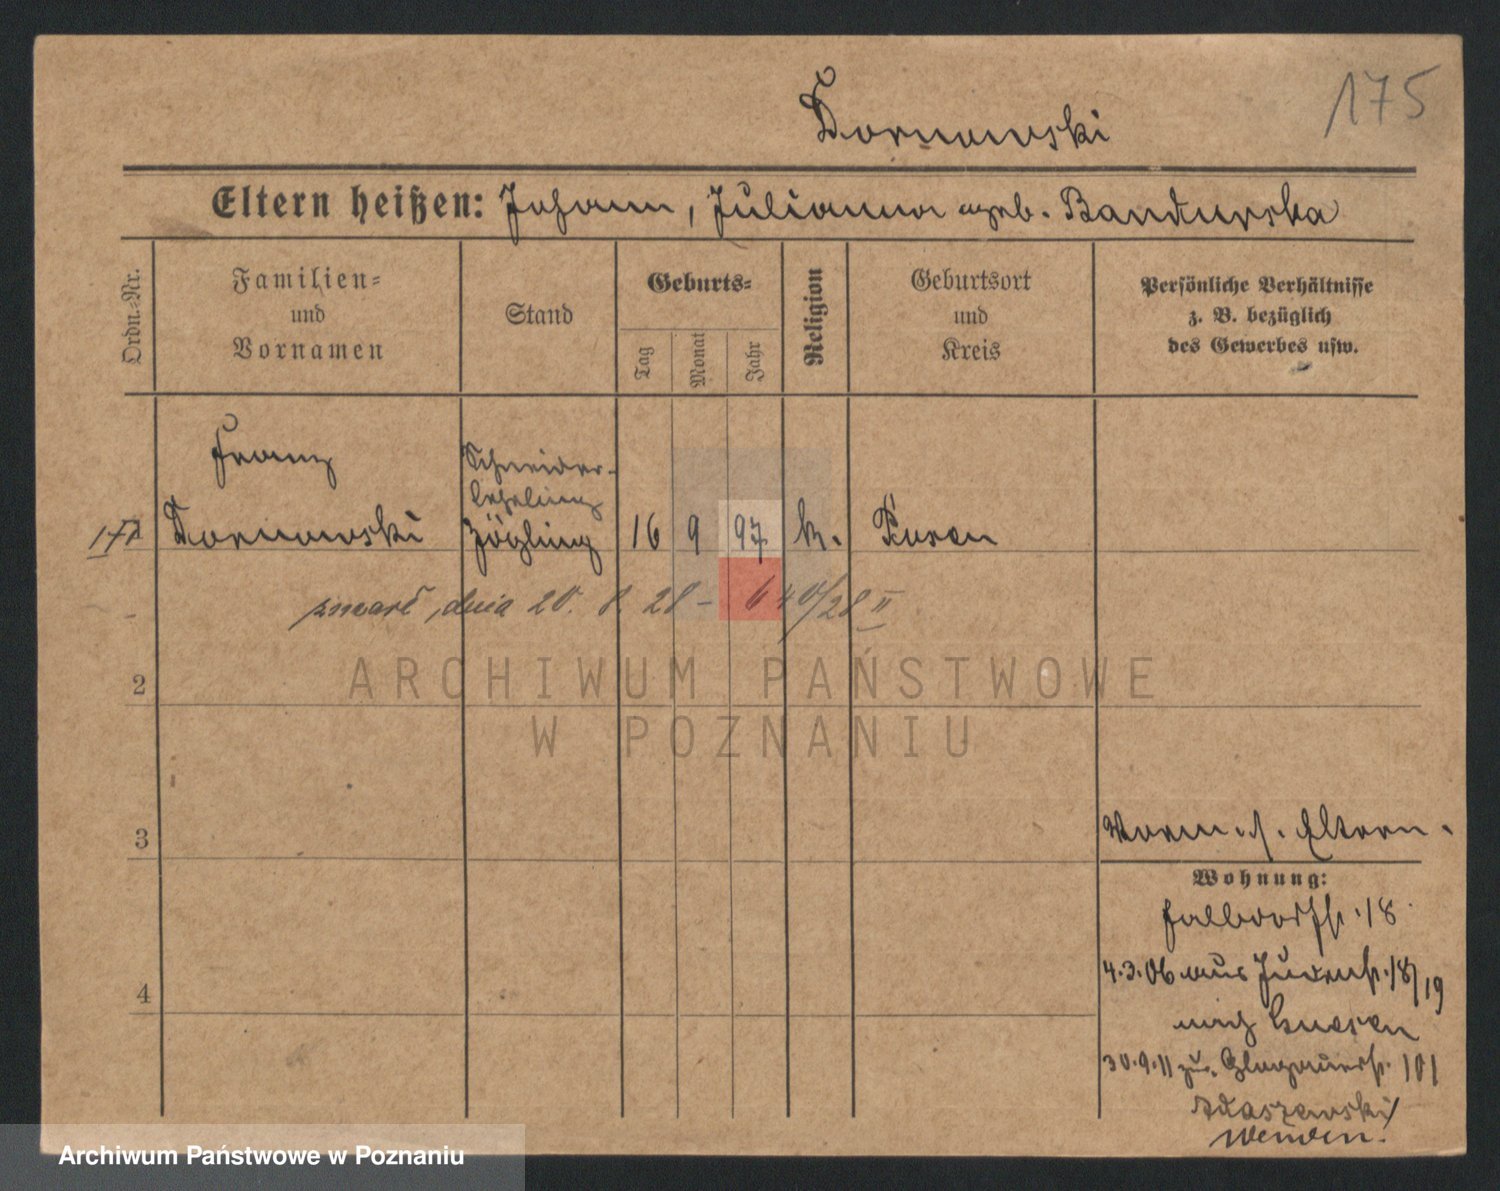 175
Dornowski
Eltern heißen: Johann, Julianna geb. Bandurska
Ordn.-Nr.
Familien-
und
Vornamen
Stand
Geburts-
Tag
Monat
Jahr
Religion
Geburtsort
und
Kreis
Persönliche Verhältnisse
z. B. bezüglich
des Gewerbes usw.
Franz
Dornowski
Schneider-
lehrling
Zögling
16 9 97 k. Posen
zmarł dnia 20. 8 28 – 640/28 II
ARCHIWUM PAŃSTWOWE
W POZNANIU
2
3
4
Vorm. s. Eltern.
Wohnung:
Halbdorfstr. 18
4.3.06 aus Judenstr. 18/19
nach Gnesen
30.9.11 zu. Glogauerstr. 101
Zdaszewski
Wenden!
Archiwum Państwowe w Poznaniu